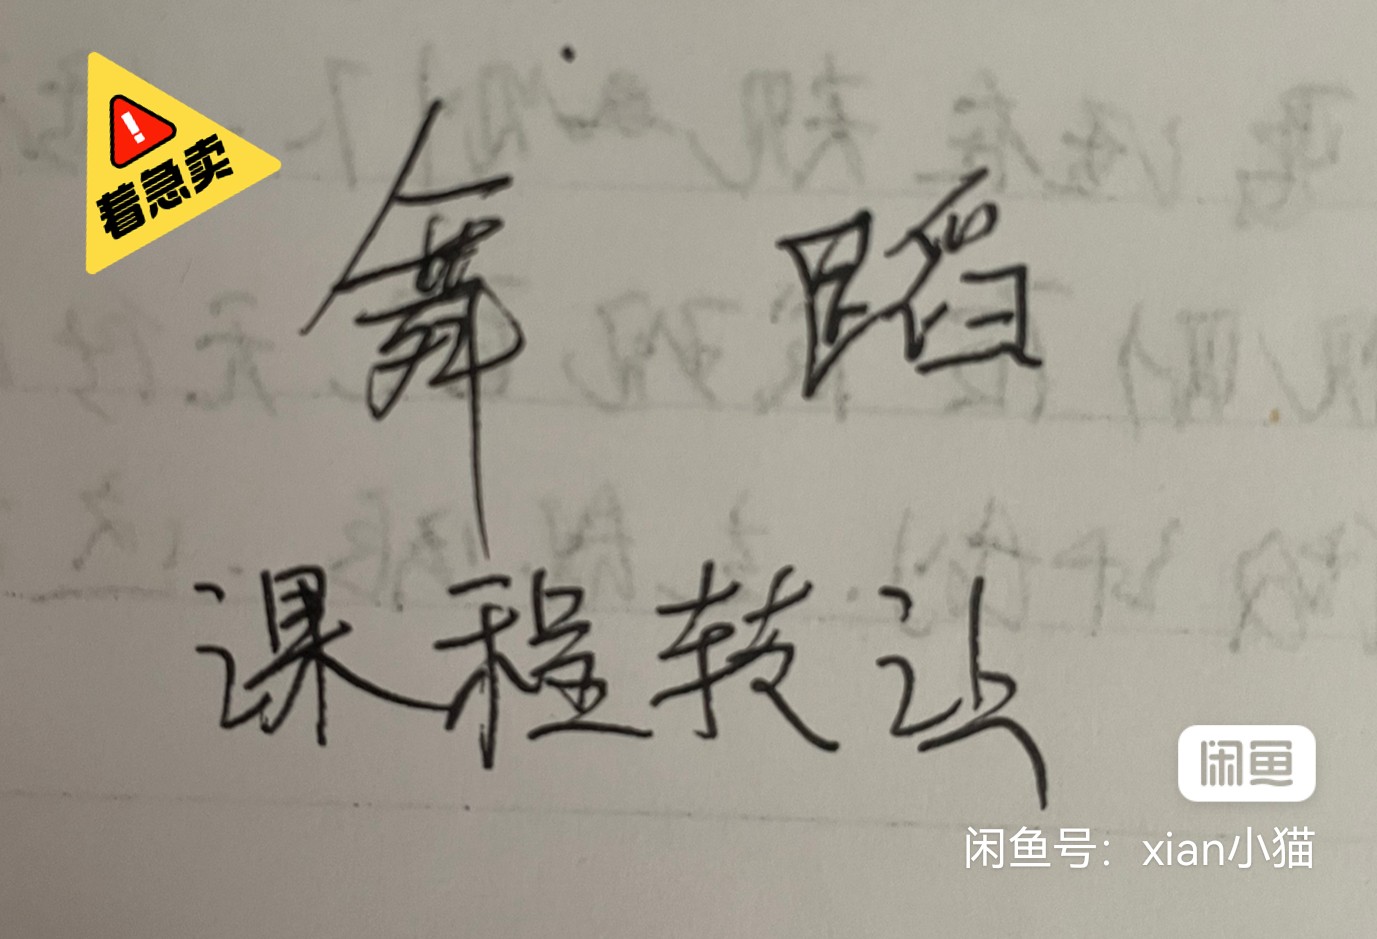 着急卖
舞 蹈
课程转让
闲鱼
闲鱼号：xian小猫